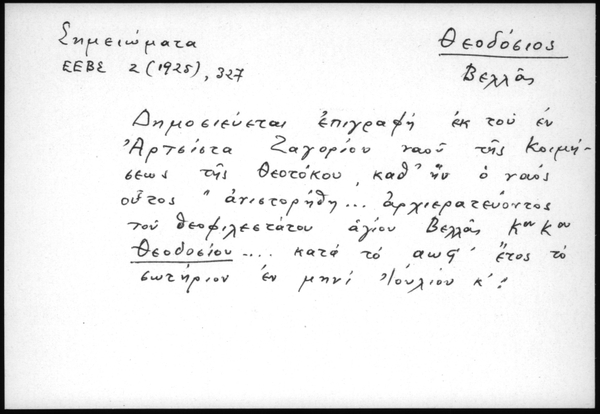 Σημειώματα
ΕΕΒΣ 2 (1925), 327
Θεοδόσιος
Βελλᾶς
Δημοσιεύεται ἐπιγραφή ἐκ τοῦ ἐν
Ἀρτσίστα Ζαγορίου ναοῦ τῆς Κοιμή-
σεως τῆς Θεοτόκου, καθ' ἥν ὁ ναός
οὗτος "ἀνιστορήθη... ἀρχιερατεύοντος
τοῦ θεοφιλεστάτου ἁγίου Βελλᾶς Κου Κου
Θεοδοσίου.... κατά τό ἔτος τό
σωτήριον ἐν μηνί Ἰουλίου κ'.